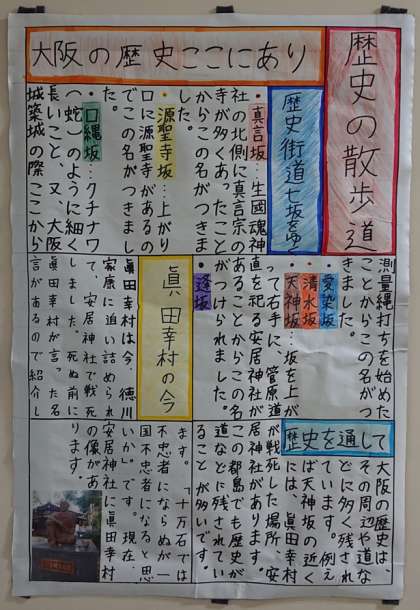 歴史の散歩道
大阪の歴史ここにあり
歴史街道七坂をゆ
・真言坂…生國魂神
社の北側に真言宗の
寺が多くあったこと
からこの名がつきま
した。
・源聖寺坂…上がり
口に源聖寺があるの
でこの名がつきまし
た。
・口縄坂…クチナワ
(蛇)のように細く
長いこと、又、大阪
城築城の際ここから
測量縄打ちを始めた
ことからこの名がつ
きました。
・愛染坂
・清水坂
・天神坂…坂を上が
って右手に、管原道
直を祀る安居神社が
あることからこの名
がつけられました。
・逢坂
眞田幸村の今
眞田幸村は今、徳川
家康に追い詰められ
て、安居神社で戦死
しました。死ぬ前に
眞田幸村が言った名
言があるので紹介し
ます。「十万石では
不忠者にならぬが一
国不忠者になると思
いか」です。現在、
安居神社に眞田幸村
の像があ
ります。
歴史を通して
大阪の歴史は
その周辺や道な
どに多く残され
ています。例え
ば天神坂の近く
には、眞田幸村
が戦死した場所、安
居神社があります。
この都島でも歴史が
道などに残されてい
ることが多いです。